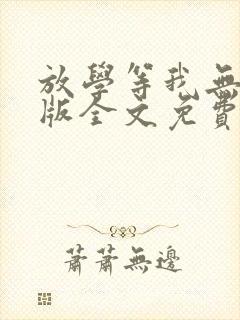 放學等我無
版全文免費
蕭蕭無邊